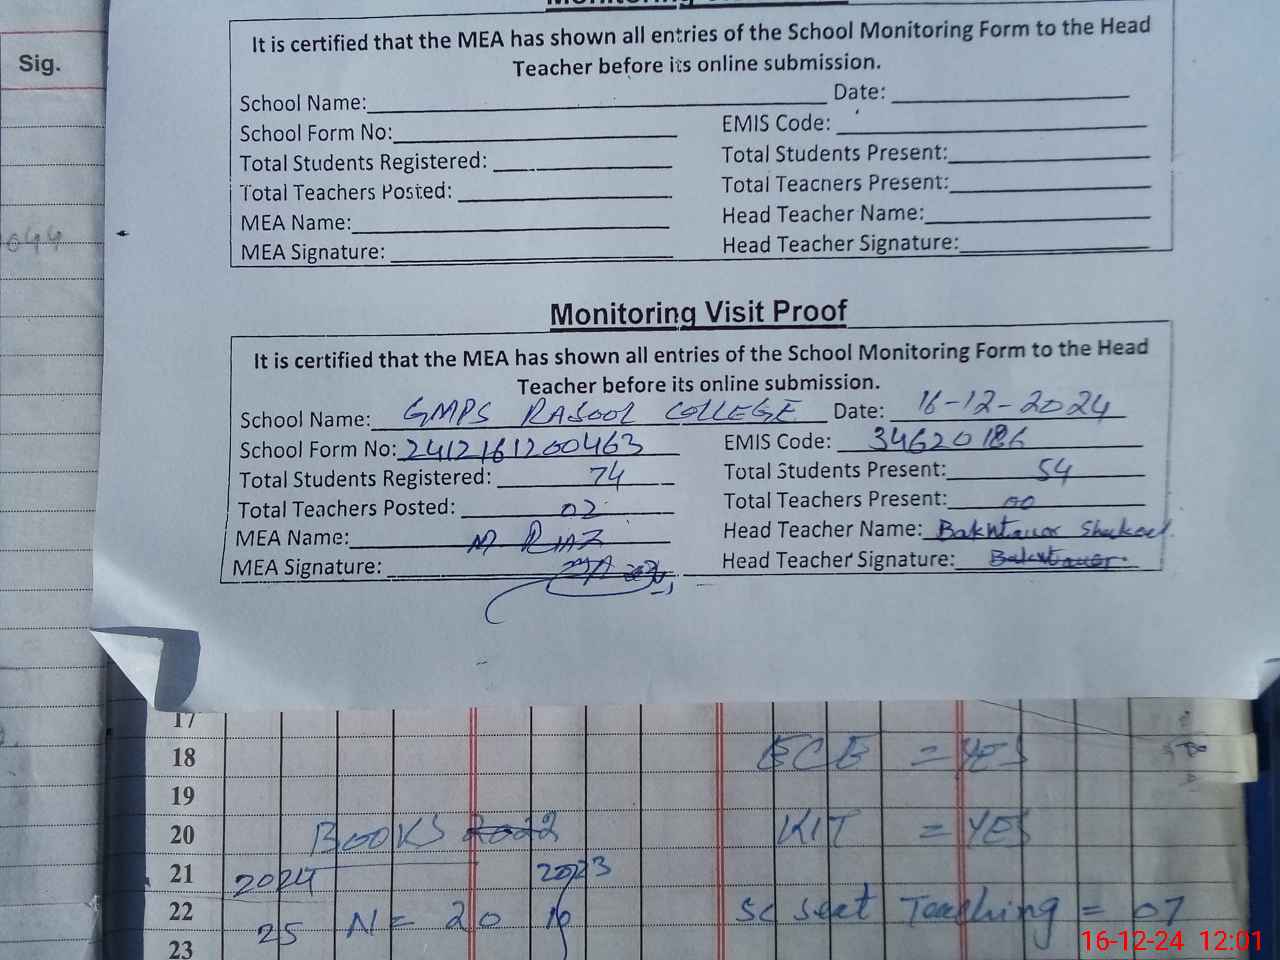 Sig.
It is certified that the MEA has shown all entries of the School Monitoring Form to the Head
Teacher before its online submission.
School Name: Date:
School Form No: EMIS Code:
Total Students Registered: Total Students Present:
Total Teachers Posted: Total Teachers Present:
MEA Name: Head Teacher Name:
MEA Signature: Head Teacher Signature:
Monitoring Visit Proof
It is certified that the MEA has shown all entries of the School Monitoring Form to the Head
Teacher before its online submission.
School Name: GMPS RASOOL COLLEGE Date: 16-12-2024
School Form No: 2412161200463 EMIS Code: 34620186
Total Students Registered: 74 Total Students Present: 54
Total Teachers Posted: 02 Total Teachers Present: 00
MEA Name: M RIAZ Head Teacher Name: Bakhtawor Shakeel
MEA Signature: Head Teacher Signature: Bakhtawor
17
18 ECE = YES
19
20 BOOKS 2022 KIT = YES
21 2024 2023
22 25 N = 20 10 Sc seat Teaching = 07
23
16-12-24 12:01